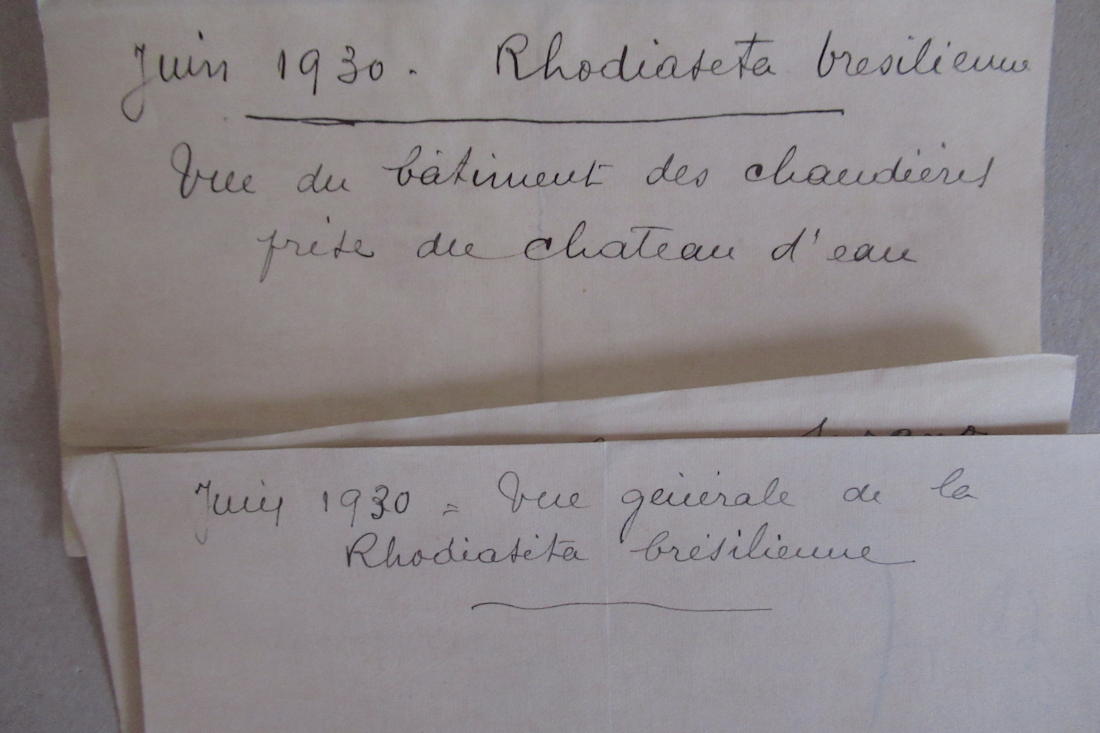 Juin 1930. Rhodiaseta bresilienne
Vue du bâtiment des chaudières
prise du chateau d'eau
Juin 1930 = Vue générale de la
Rhodiaséta brésilienne